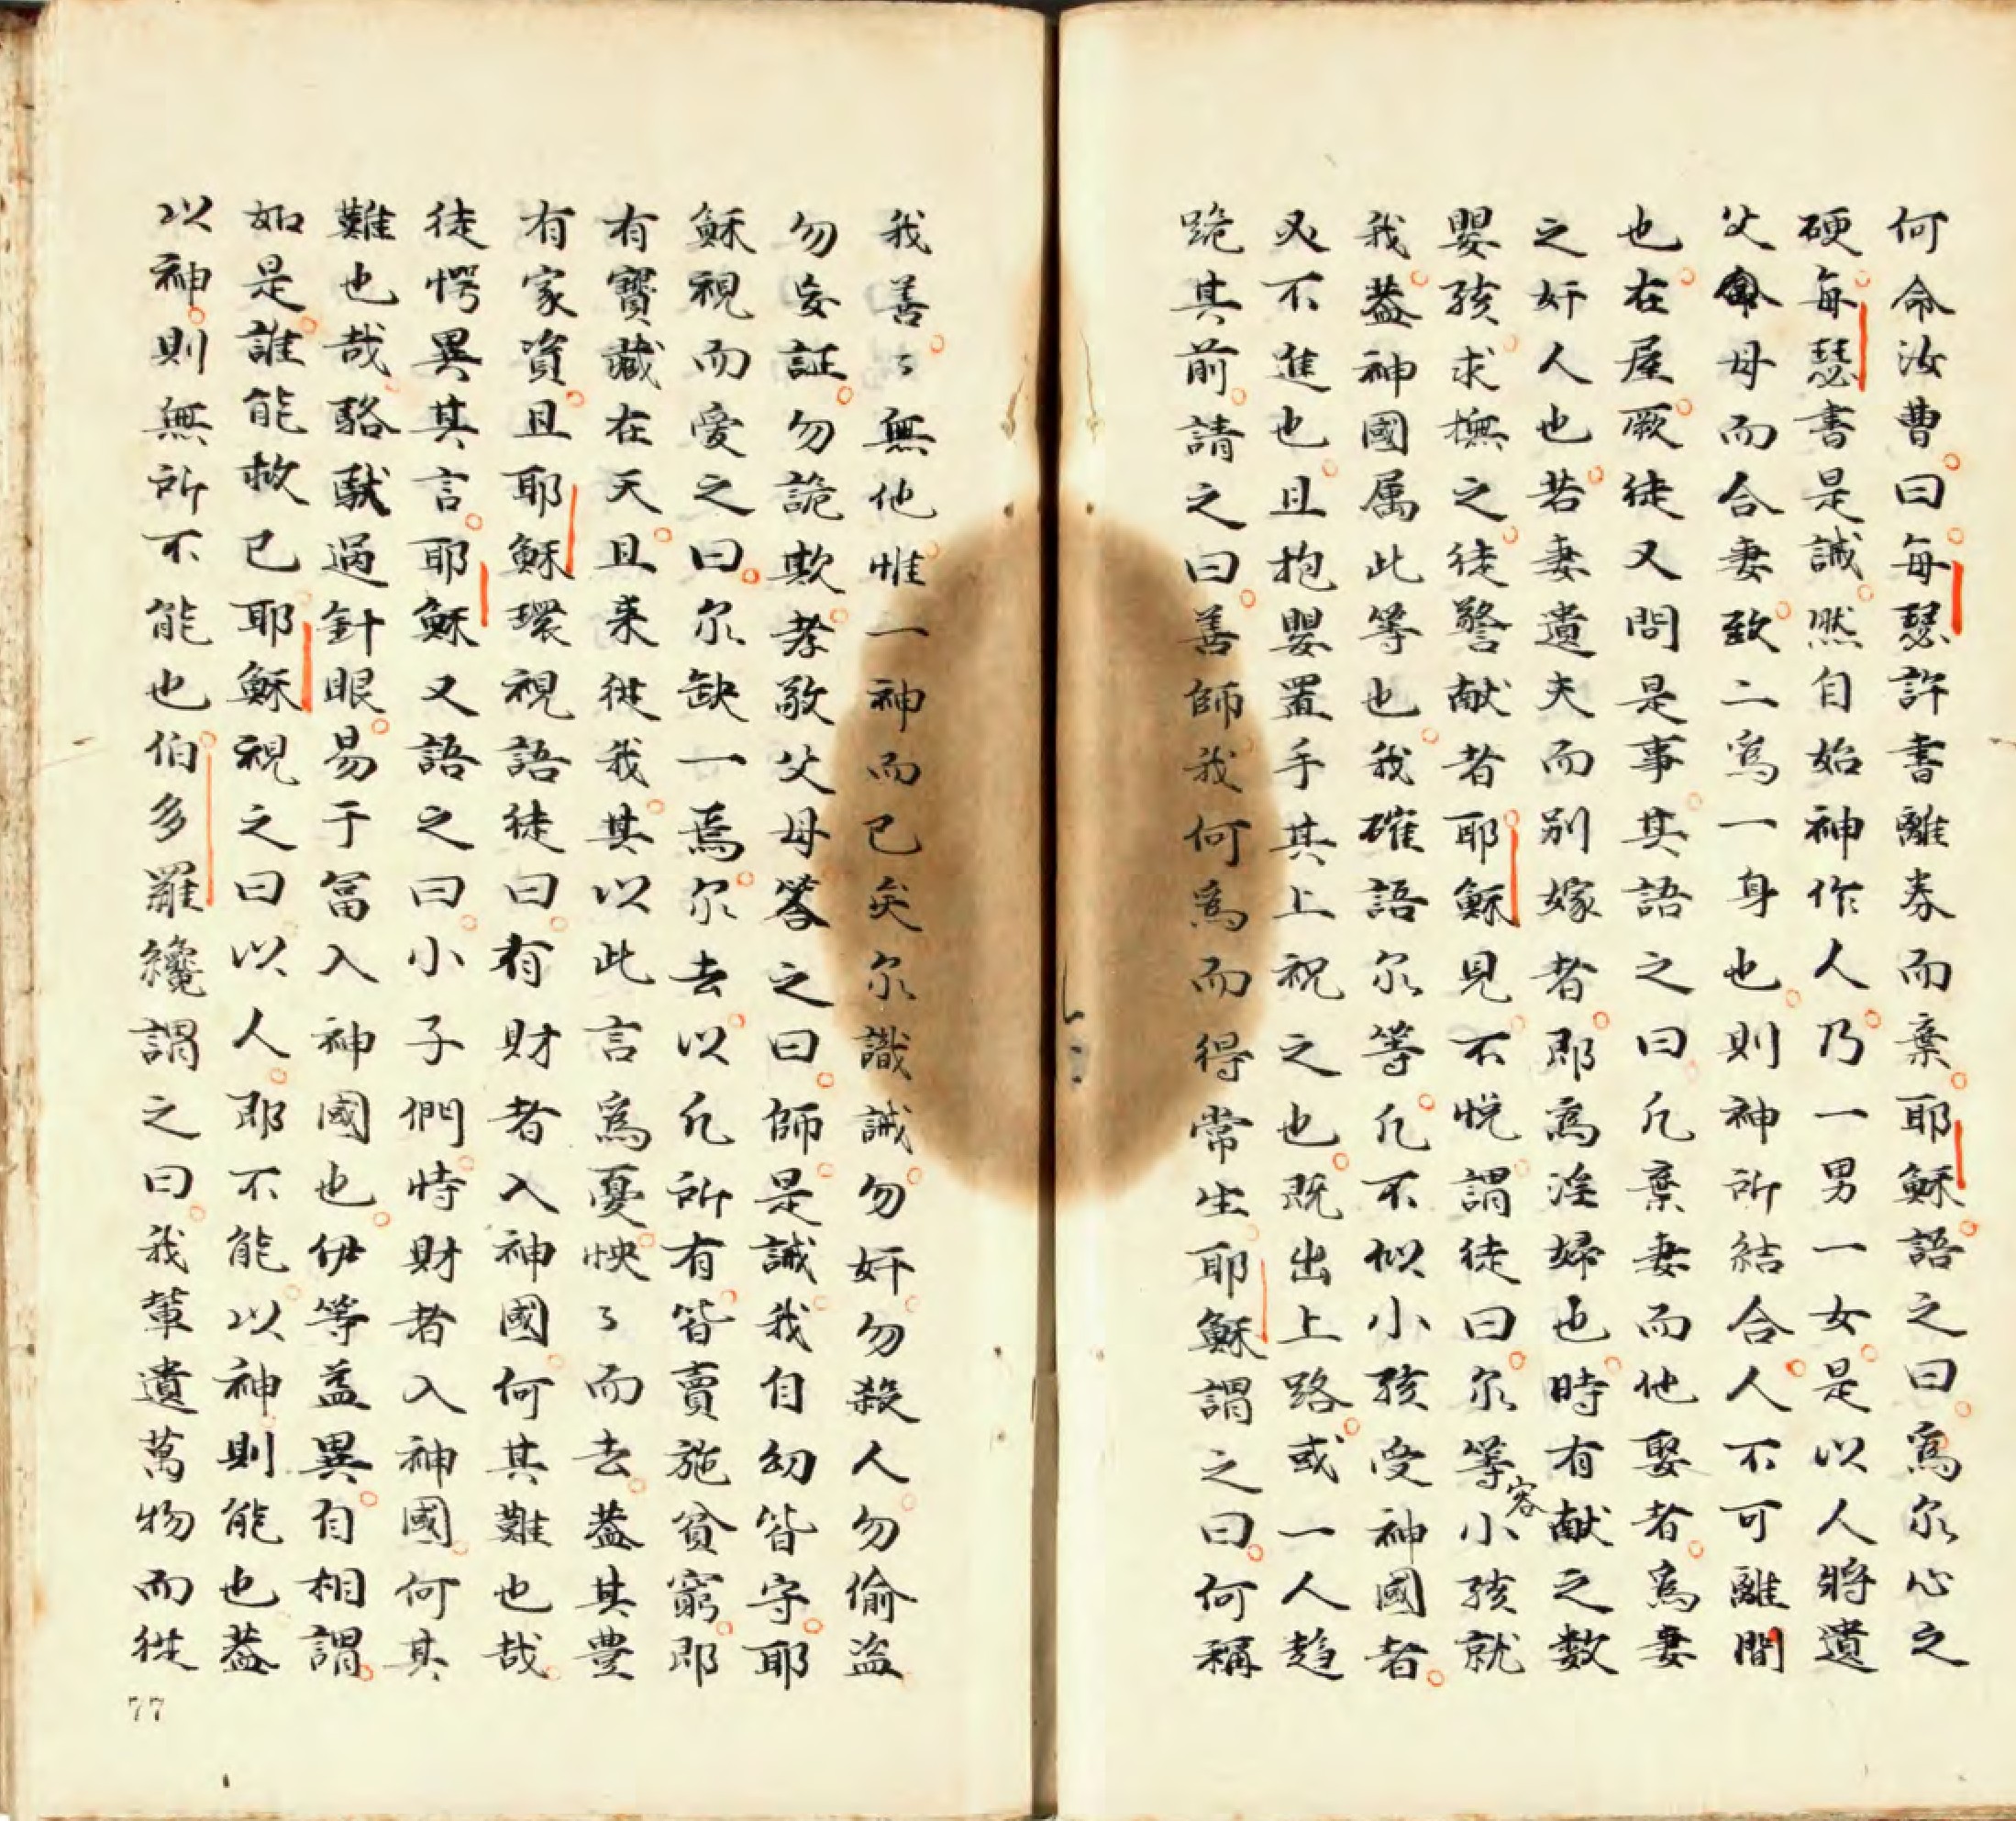 何命汝曹。曰。每瑟許書離券而棄。耶穌語之曰。爲尔心之
硬。每瑟書是誡。然自始神作人。乃一男一女。是以人將遺
父母而合妻。致二爲一身也。則神所結合。人不可離間
也。在屋。厥徒又問是事。其語之曰。凡棄妻而他娶者。爲妻
之奸人也。若妻遺夫而別嫁者。即爲淫婦也。時有献之数
嬰孩。求撫之。徒警献者。耶穌見。不悦。謂徒曰。尔等容小孩就
我。蓋神國属此等也。我確語尔等。凡不似小孩受神國者。
必不進也。且抱嬰置手其上祝之也。既出上路。或一人趋
跪其前。請之曰。善師我何爲而得常生。耶穌謂之曰。何稱
我善。〻無他。惟一神而已矣尔識誡。勿奸。勿殺人。勿偷盗
勿妄証。勿詭欺。孝敬父母答之曰。師。是誡。我自幼皆守。耶
穌視而愛之曰。尔缺一焉。尔去。以凡所有。皆賣施貧窮。即
有寶藏在天。且来従我。其以此言爲憂怏。〻而去。蓋其豊
有家資。且耶穌環視語徒曰。有財者入神國。何其難也哉。
徒愕異其言。耶穌又語之曰。小子們。恃財者入神國。何其
難也哉。駱駄過針眼。易于冨入神國也。伊等益異。自相謂。
如是。誰能救已。耶穌視之曰。以人。即不能。以神。則能也。蓋
以神。則無所不能也。伯多羅纔謂之曰。我輩遺萬物而従
77